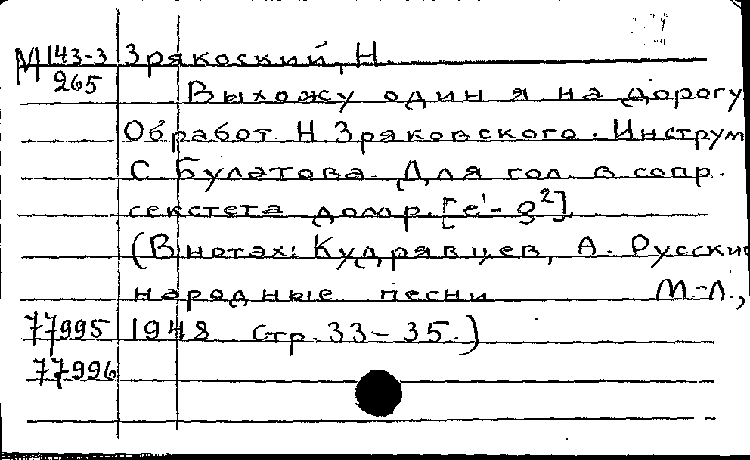 М 143-3 Зряковский, Н.
265 Выхожу один я на дорогу
Обработ. Н. Зряковского. Инструм
С. Булатова. Для гол. в сопр.
секстета домр. [e¹- g²].
(В нотах: Кудрявцев, А. Русские
народные песни М-Л.,
77995 1948 Стр. 33-35.)
77996